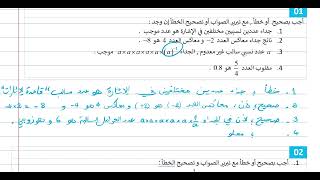 01
أجب بصحيح أو خطأ , مع تبرير الصواب أو تصحيح الخطأ إن وجد :
1. جداء عددين نسبيين مختلفين في الإشارة هو عدد موجب .
2. ناتج جداء معاكس العدد 2- و معاكس العدد 4 هو 8- .
3. a عدد نسبي سالب غير معدوم , الجداء a×a×a×a×a×(a) موجب .
4. مقلوب العدد 5/4 هو 0.8 .
1. خطأ , جداء عددين مختلفين في الإشارة هو عدد سالب "قاعدة الإشارات"
2. صحيح , لأن معاكس العدد (2-) هو (2+) و معاكس 4 هو 4-
3. صحيح , لأن في الجداء a×a×a×a×a عدد العوامل السالبة 6 وهو زوجي .
4.
02
1. أجب بصحيح أو خطأ مع تبرير الصواب و تصحيح الخطأ :